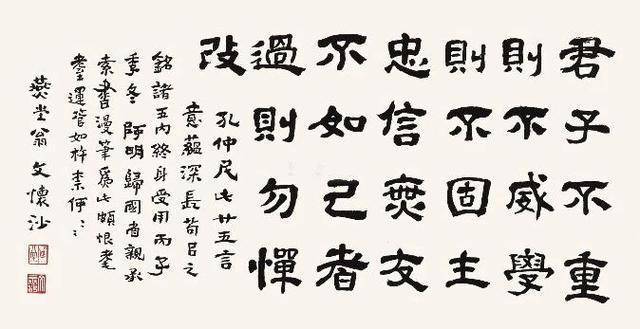 君子不重
則不威學
則不固主
忠信無友
不如己者
過則勿憚
改
孔仲尼此廿五言
意蘊深長苟㠯之
銘諸五內終身受用丙子
季冬 阿明歸國省親承
索書漫筆爲此頗恨老
耄運管如杵柰何〻
燕堂翁文懷沙